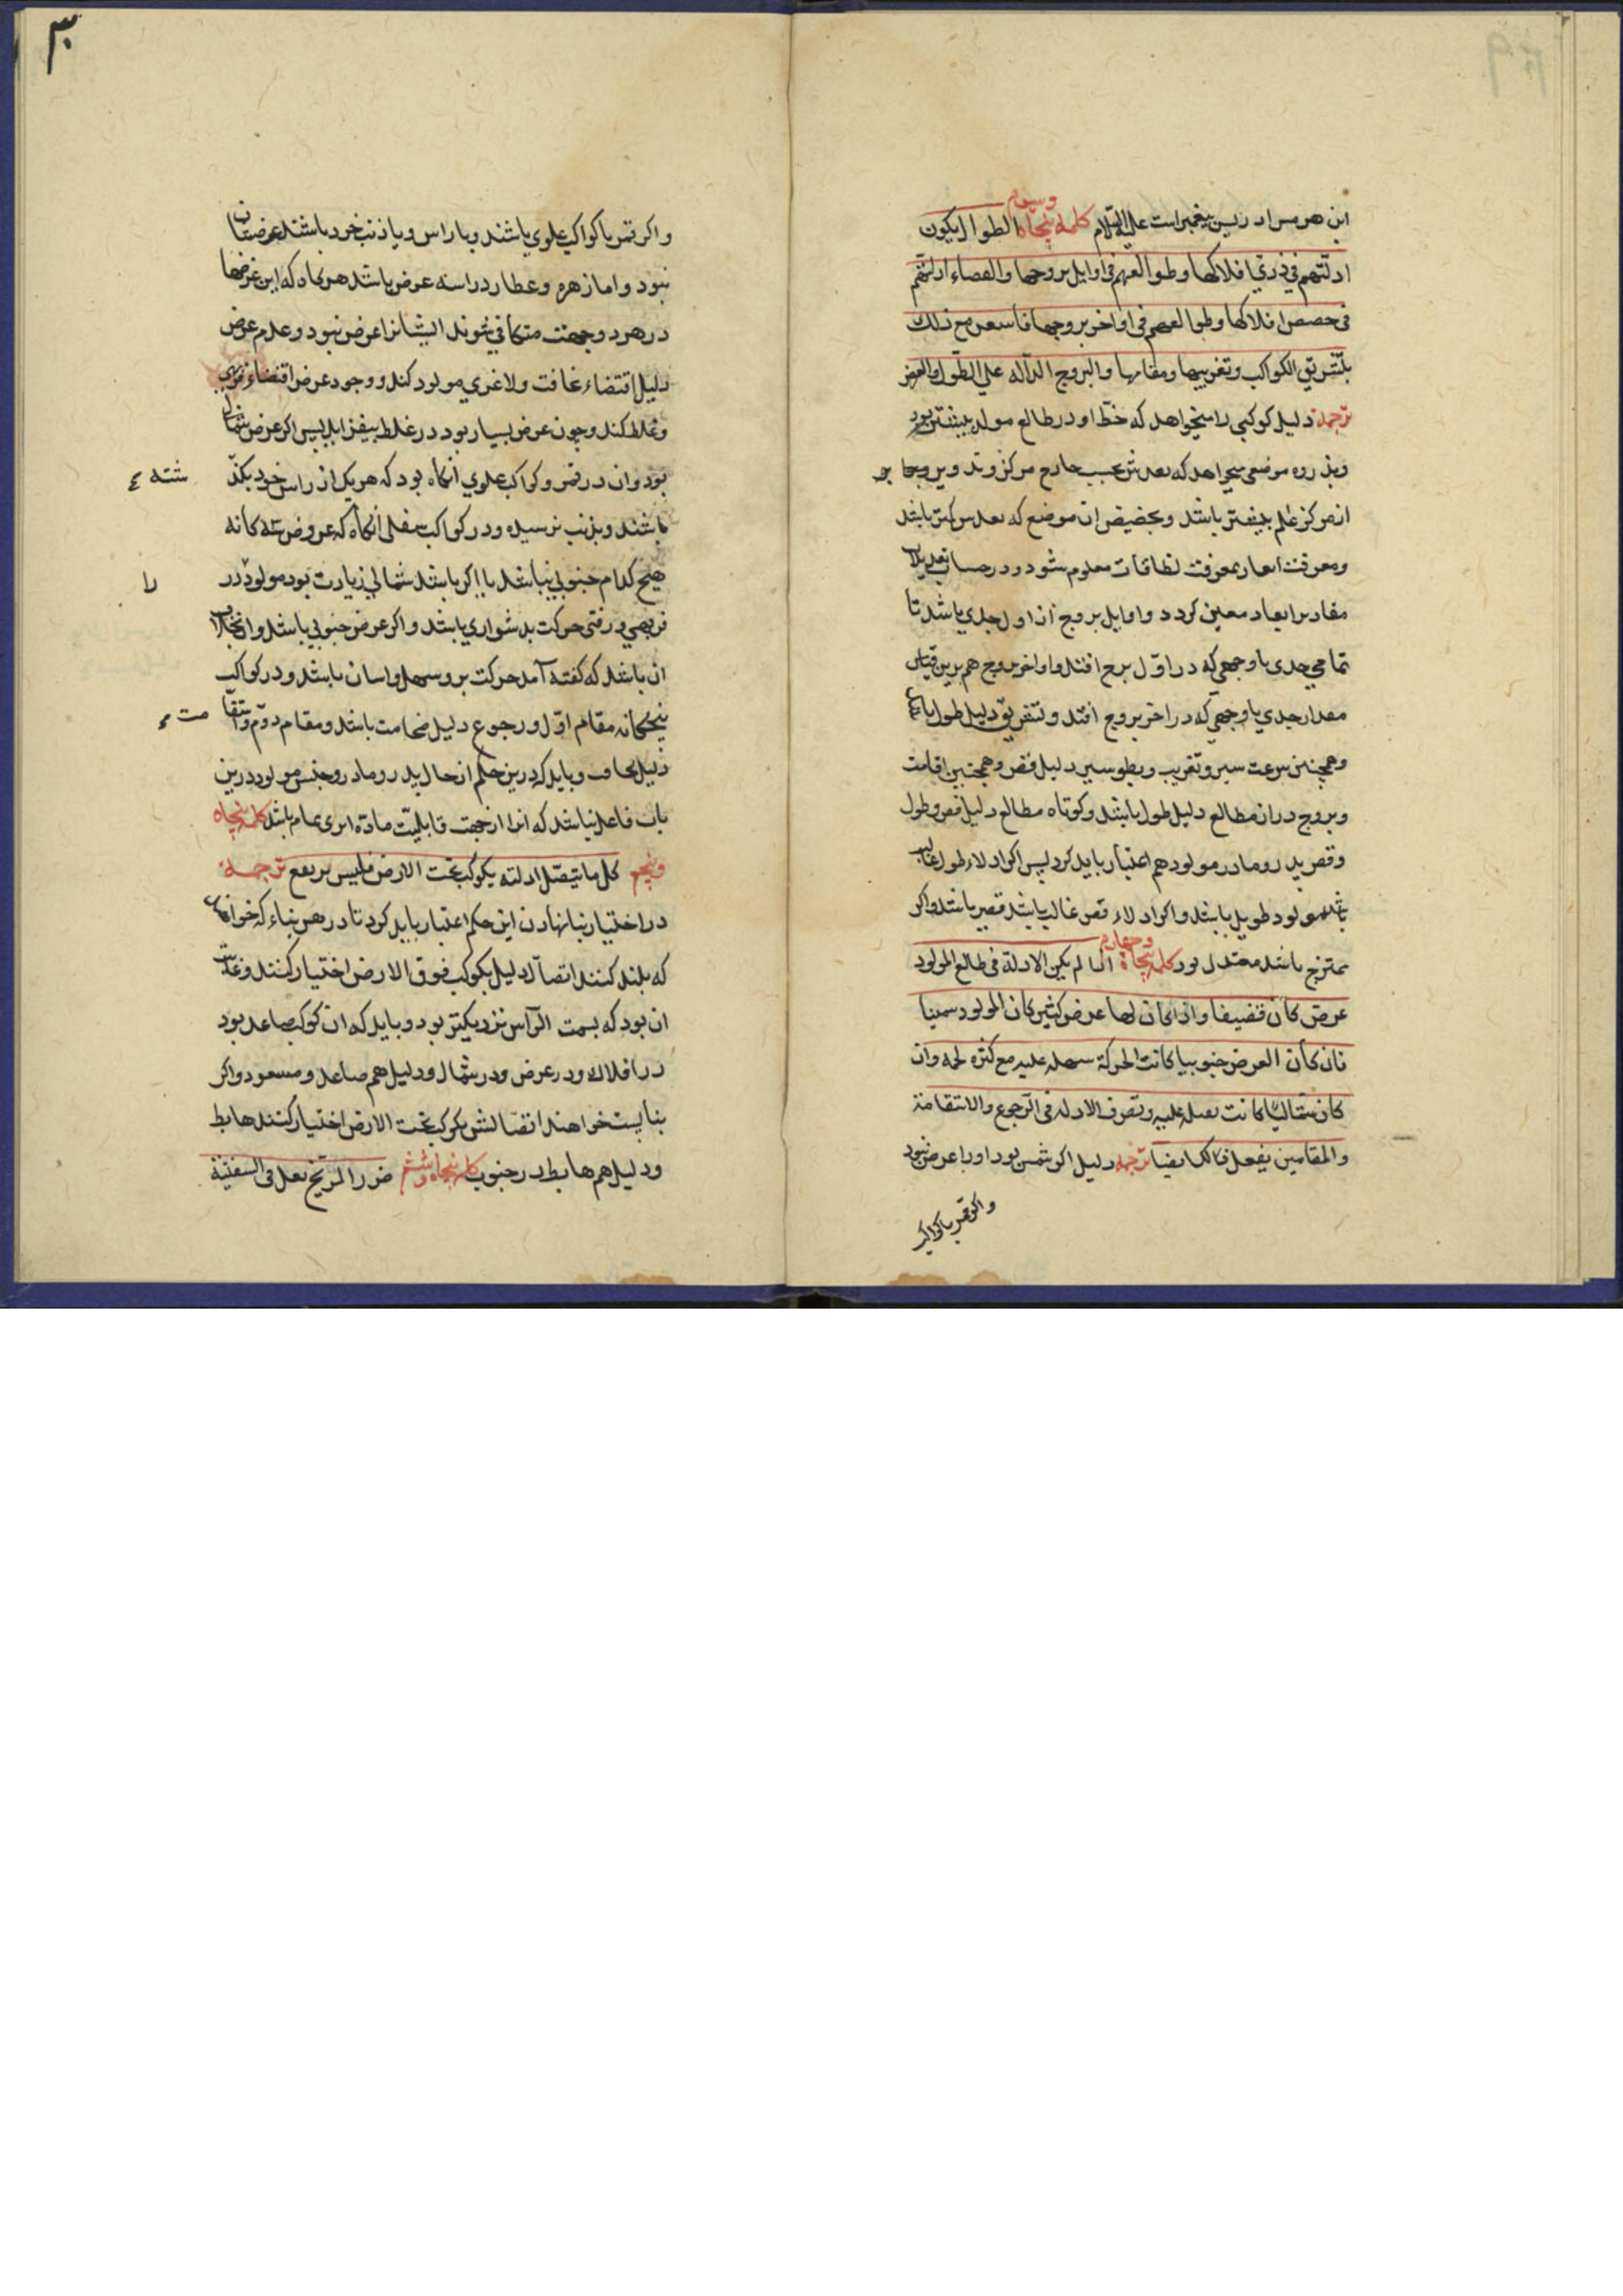 ۲۹
این هرمس ادریس پیغمبر است علیه السّلام کلمه پنجاه وسیوم الطوال یکون
ادلّتهم فی ذری افلاکها وطوالعهم فی اوایل بروجها والقصاء ادلتهم
فی حضیض افلاکها وطوالعهم فی اواخر بروجها فاستعن مع ذلک
بتشریق الکواکب وتغریبها ومقامها والبروج الدآله علی الطّول والعرض
ترجمه دلیل کوکبی را میخواهد که حظّ او در طالع مولد بیشتر بود
وبذروه موضعی میخواهد که بعدش بحسب خارج مرکز وتدویر
از مرکز عالم بیشتر باشد وبحضیض ان موضع که بعدش کمتر باشد
ومعرفت ابعاد بمعرفت نطاقات معلوم شود ودر حساب تعدیلات
مقادیر ابعاد معین کردد واوایل بروج از اول جدی باشد تا
تمامی جدی با وجهی که در اوّل برج افتد واواخر بروج هم برین قیاس
مقدار جدی با وجهی که در اخر بروج افتد وتشریق دلیل طول باشد
وهمچنین سرعت سیر وتغریب وبطو سیر دلیل قصر وهمچنین اقامت
وبروج دراز مطالع دلیل طول باشد وکوتاه مطالع دلیل قصر وطول
وقصر پدر ومادر مولود هم اعتبار باید کرد پس اکر ادلاء طول غالب
باشد مولود طویل باشد واکر ادلاء قصر غالب باشد قصیر باشد واکر
ممتزج باشد معتدل بود کلمه پنجاه وچهارم اذا لم یکن الادلة فی طالع المولود
عرض کان قضیفا واذا کان لها عرض کثیر کان المولود سمینا
فان کان العرض جنوبیا کانت الحرکة سهله علیه مع کثره لحمه وان
کان شمالیّا کانت ثقیله علیه وتصرف الادله فی الرّجوع والاستقامة
والمقامین یفعل فی الکل ایضا ترجمه دلیل اکر شمس بود اورا عرض نبود
واکر قمر با کواکب
۳۰
واکر قمر یا کواکب علوی باشند وبا راس ویا ذنب خرد باشند عرضشان
نبود واما زهره وعطارد را سه عرض باشد هر کاه که این عرضها
در هر دو جهت متکافی شوند ایشانرا عرض نبود وعدم عرض
دلیل اقتضاء نحافت ولاغری مولود کند ووجود عرض اقتضاء فربهی
وغلظ کند وچون عرض بسیار بود در غلظ بیفزاید پس اکر عرض شمالی
بود وان در قمر وکواکب علوی انکاه بود که هریک از راس خود بکذ
شته
باشند وبذنب نرسیده ودر کواکب سفلی انکاه که عروض سه کانه
هیچ کدام جنوبی نباشد یا اکر باشد شمالی زیادت بود مولود در
را
فربهی ورفتن حرکت بدشواری باشد واکر عرض جنوبی باشد وان بخلاف
ان باشد که کفته آمد حرکت برو سهل واسان باشد ودر کواکب
پنجکانه مقام اوّل ورجوع دلیل ضخامت باشد ومقام دوّم واستقا
مت
دلیل نحافت وباید که درین حکم از حال پدر ومادر وجنس مولود درین
باب غافل نباشد که اثرا از جهت قابلیّت مادّه اثری تمام باشد کلمه پنجاه
وپنجم کل ما یتصّل ادلته بکوکب تحت الارض فلیس یرتفع ترجمه
در اختیار بنا نهادن این حکم اعتبار باید کرد تا در هر بناء که خواهند
که بلند کنند اتصال دلیل بکوکب فوق الارض اختیار کنند وغایت
ان بود که بسمت الرّاس نزدیکتر بود وباید که ان کوکب صاعد بود
در افلاک ودر عرض ودر شمال ودلیل هم صاعد ومسعود واکر
بنا پست خواهند اتصّالش بکوکب تحت الارض اختیار کنند هابط
ودلیل هم هابط در جنوب کلمه پنجاه وششم ضرر المریّخ یقل فی السفینة